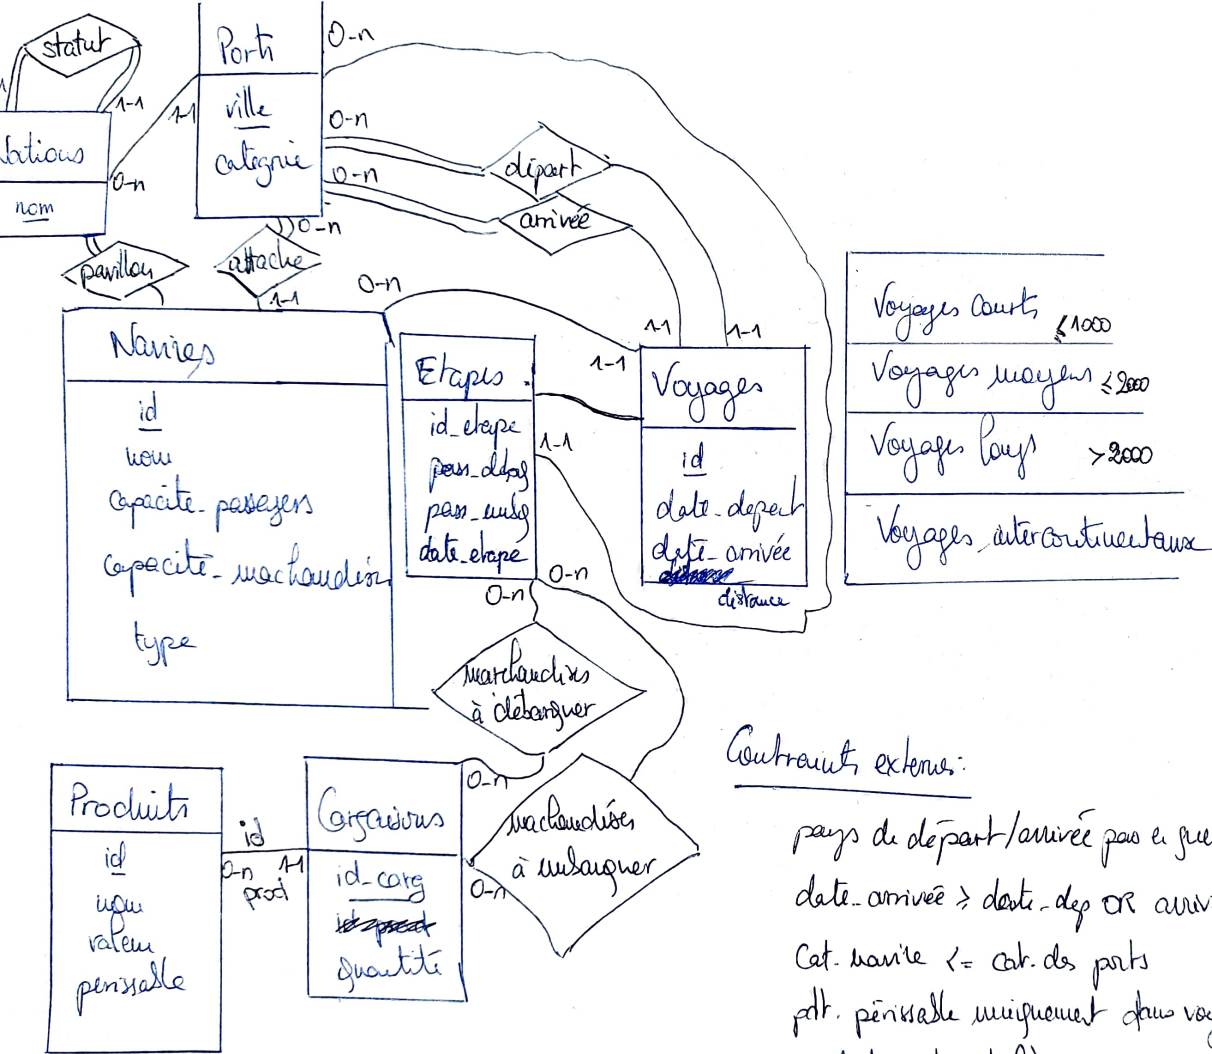 statut
Ports
0-n
1-1
1-1
ville
catégorie
0-n
0-n
départ
arrivée
Nations
nom
0-n
0-n
pavillon
attache
1-1
0-n
1-1
1-1
1-1
Navires
id
nom
capacité_passagers
capacité_machandises
type
Etapes
id_etape
pass_debag
pass_embg
date_etape
1-1
0-n
0-n
Voyages
id
date_depart
date_arrivée
distance
Voyages Courts ≤1000
Voyages moyens ≤2000
Voyages longs >2000
Voyages intercontinentaux
marchandises
à débarquer
0-n
machandises
à embarquer
0-n
Produits
id
nom
valeur
périssable
id
0-n 1-1
prod
Cargaisons
id_carg
quantité
Contraints externes:
pays de départ/arrivée pas en gue
date_arrivée ≥ date_dep OR arriv
Cat. navire <= cat. des ports
pdt. périssable uniquement dans voy